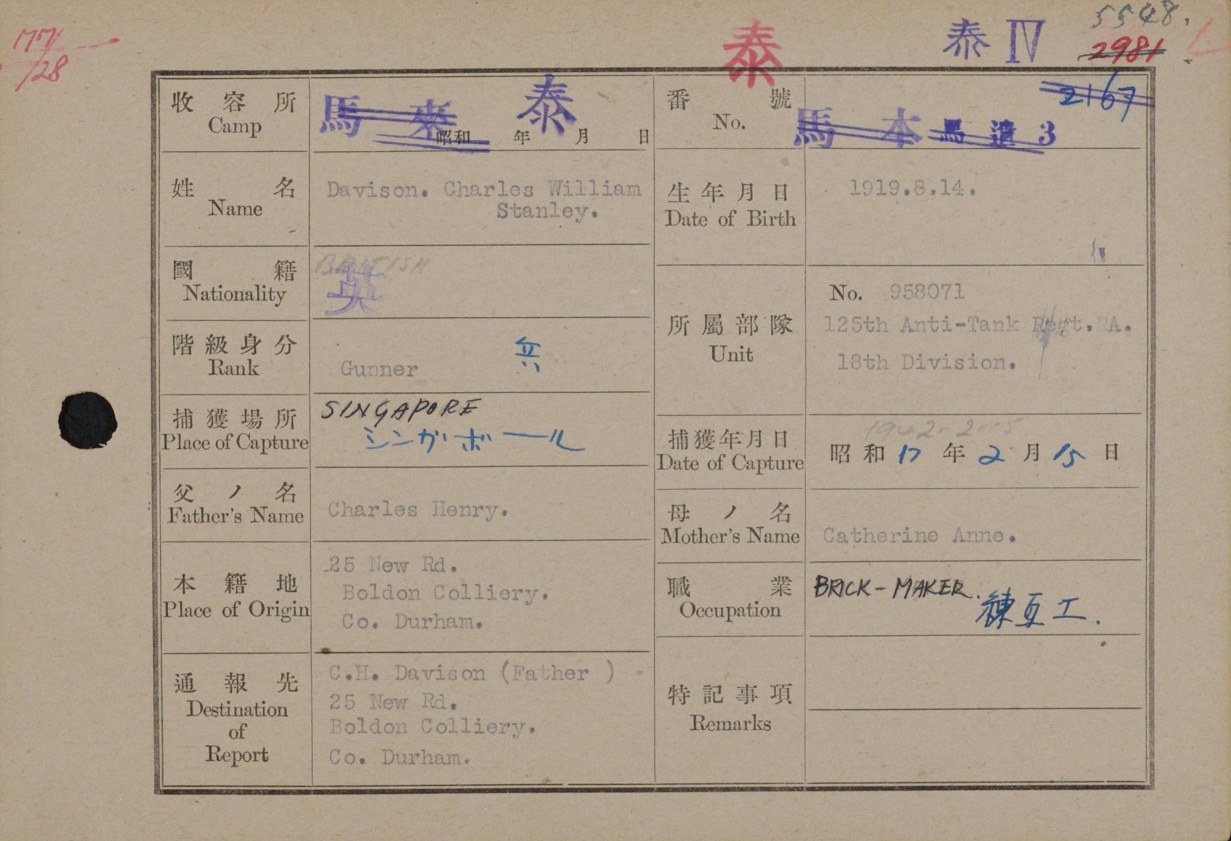 77/28
泰
泰 IV
5548.
2981
2167
收容所
Camp
馬來 泰
昭和 年 月 日
番號
No.
馬本 馬遣 3
姓名
Name
Davison. Charles William
Stanley.
生年月日
Date of Birth
1919.8.14.
國籍
Nationality
BRITISH
英
所屬部隊
Unit
No. 958071
125th Anti-Tank Regt.RA.
18th Division.
階級身分
Rank
Gunner 兵
捕獲場所
Place of Capture
SINGAPORE
シンガポール
捕獲年月日
Date of Capture
1942-2-15
昭和 17 年 2 月 15 日
父ノ名
Father's Name
Charles Henry.
母ノ名
Mother's Name
Catherine Anne.
本籍地
Place of Origin
25 New Rd.
Boldon Colliery.
Co. Durham.
職業
Occupation
BRICK-MAKER.
練瓦工.
通報先
Destination
of
Report
C.H. Davison (Father )
25 New Rd.
Boldon Colliery.
Co. Durham.
特記事項
Remarks